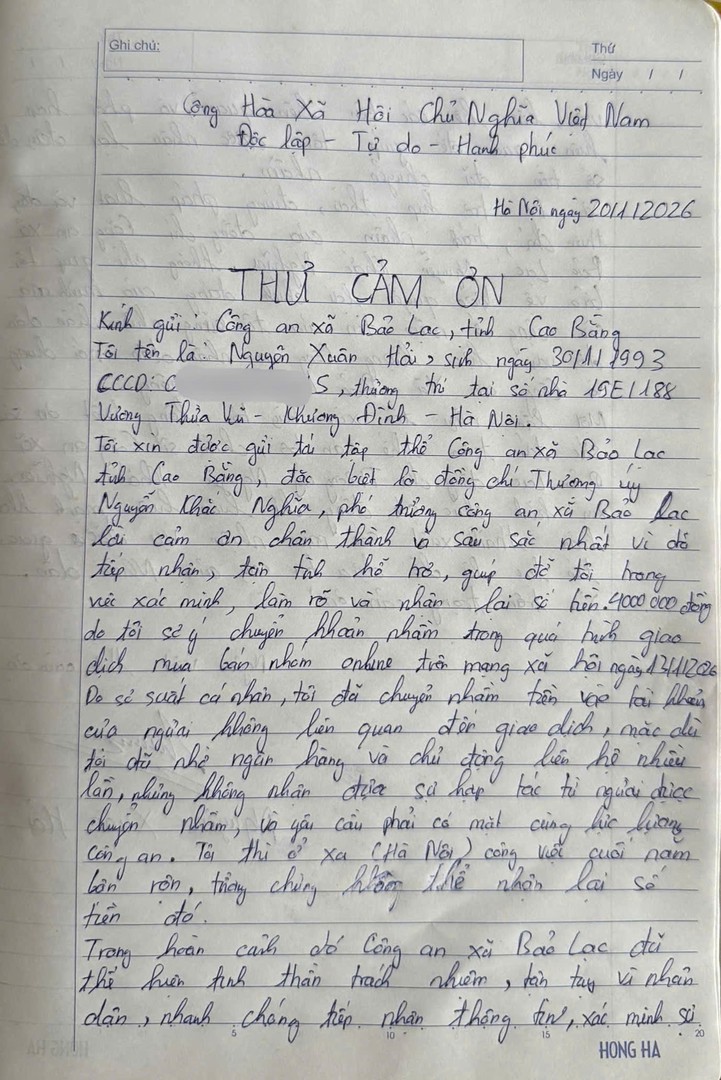 Ghi chú:
Thứ
Ngày / /
Cộng Hòa Xã Hội Chủ Nghĩa Việt Nam
Độc lập - Tự do - Hạnh phúc
Hà Nội ngày 20/1/2026
THƯ CẢM ƠN
Kính gửi: Công an xã Bảo Lạc, tỉnh Cao Bằng
Tôi tên là: Nguyễn Xuân Hải, sinh ngày 30/11/1993
CCCD: 0 5, thường trú tại số nhà 19E1/188
Vương Thừa Vũ - Khương Đình - Hà Nội.
Tôi xin được gửi tới tập thể Công an xã Bảo Lạc
tỉnh Cao Bằng, đặc biệt là đồng chí Thượng úy
Nguyễn Khắc Nghĩa, phó trưởng công an xã Bảo Lạc
lời cảm ơn chân thành và sâu sắc nhất vì đã
tiếp nhận, tận tình hỗ trợ, giúp đỡ tôi trong
việc xác minh, làm rõ và nhận lại số tiền. 4000 000 đồng
do tôi sơ ý chuyển khoản nhầm trong quá trình giao
dịch mua bán nhóm online trên mạng xã hội ngày 13/1/2026
Do sơ suất cá nhân, tôi đã chuyển nhầm tiền vào tài khoản
của người không liên quan đến giao dịch, mặc dù
tôi đã nhờ ngân hàng và chủ động liên hệ nhiều
lần, nhưng không nhận được sự hợp tác từ người được
chuyển nhầm, và yêu cầu phải có mặt cùng lực lượng
công an. Tôi thì ở xa (Hà Nội) công việc cuối năm
bận rộn, tưởng chừng không thể nhận lại số
tiền đó.
Trong hoàn cảnh đó Công an xã Bảo Lạc đã
thể hiện tinh thần trách nhiệm, tận tụy vì nhân
dân, nhanh chóng tiếp nhận thông tin, xác minh sự
5 10 15 20
HONG HA